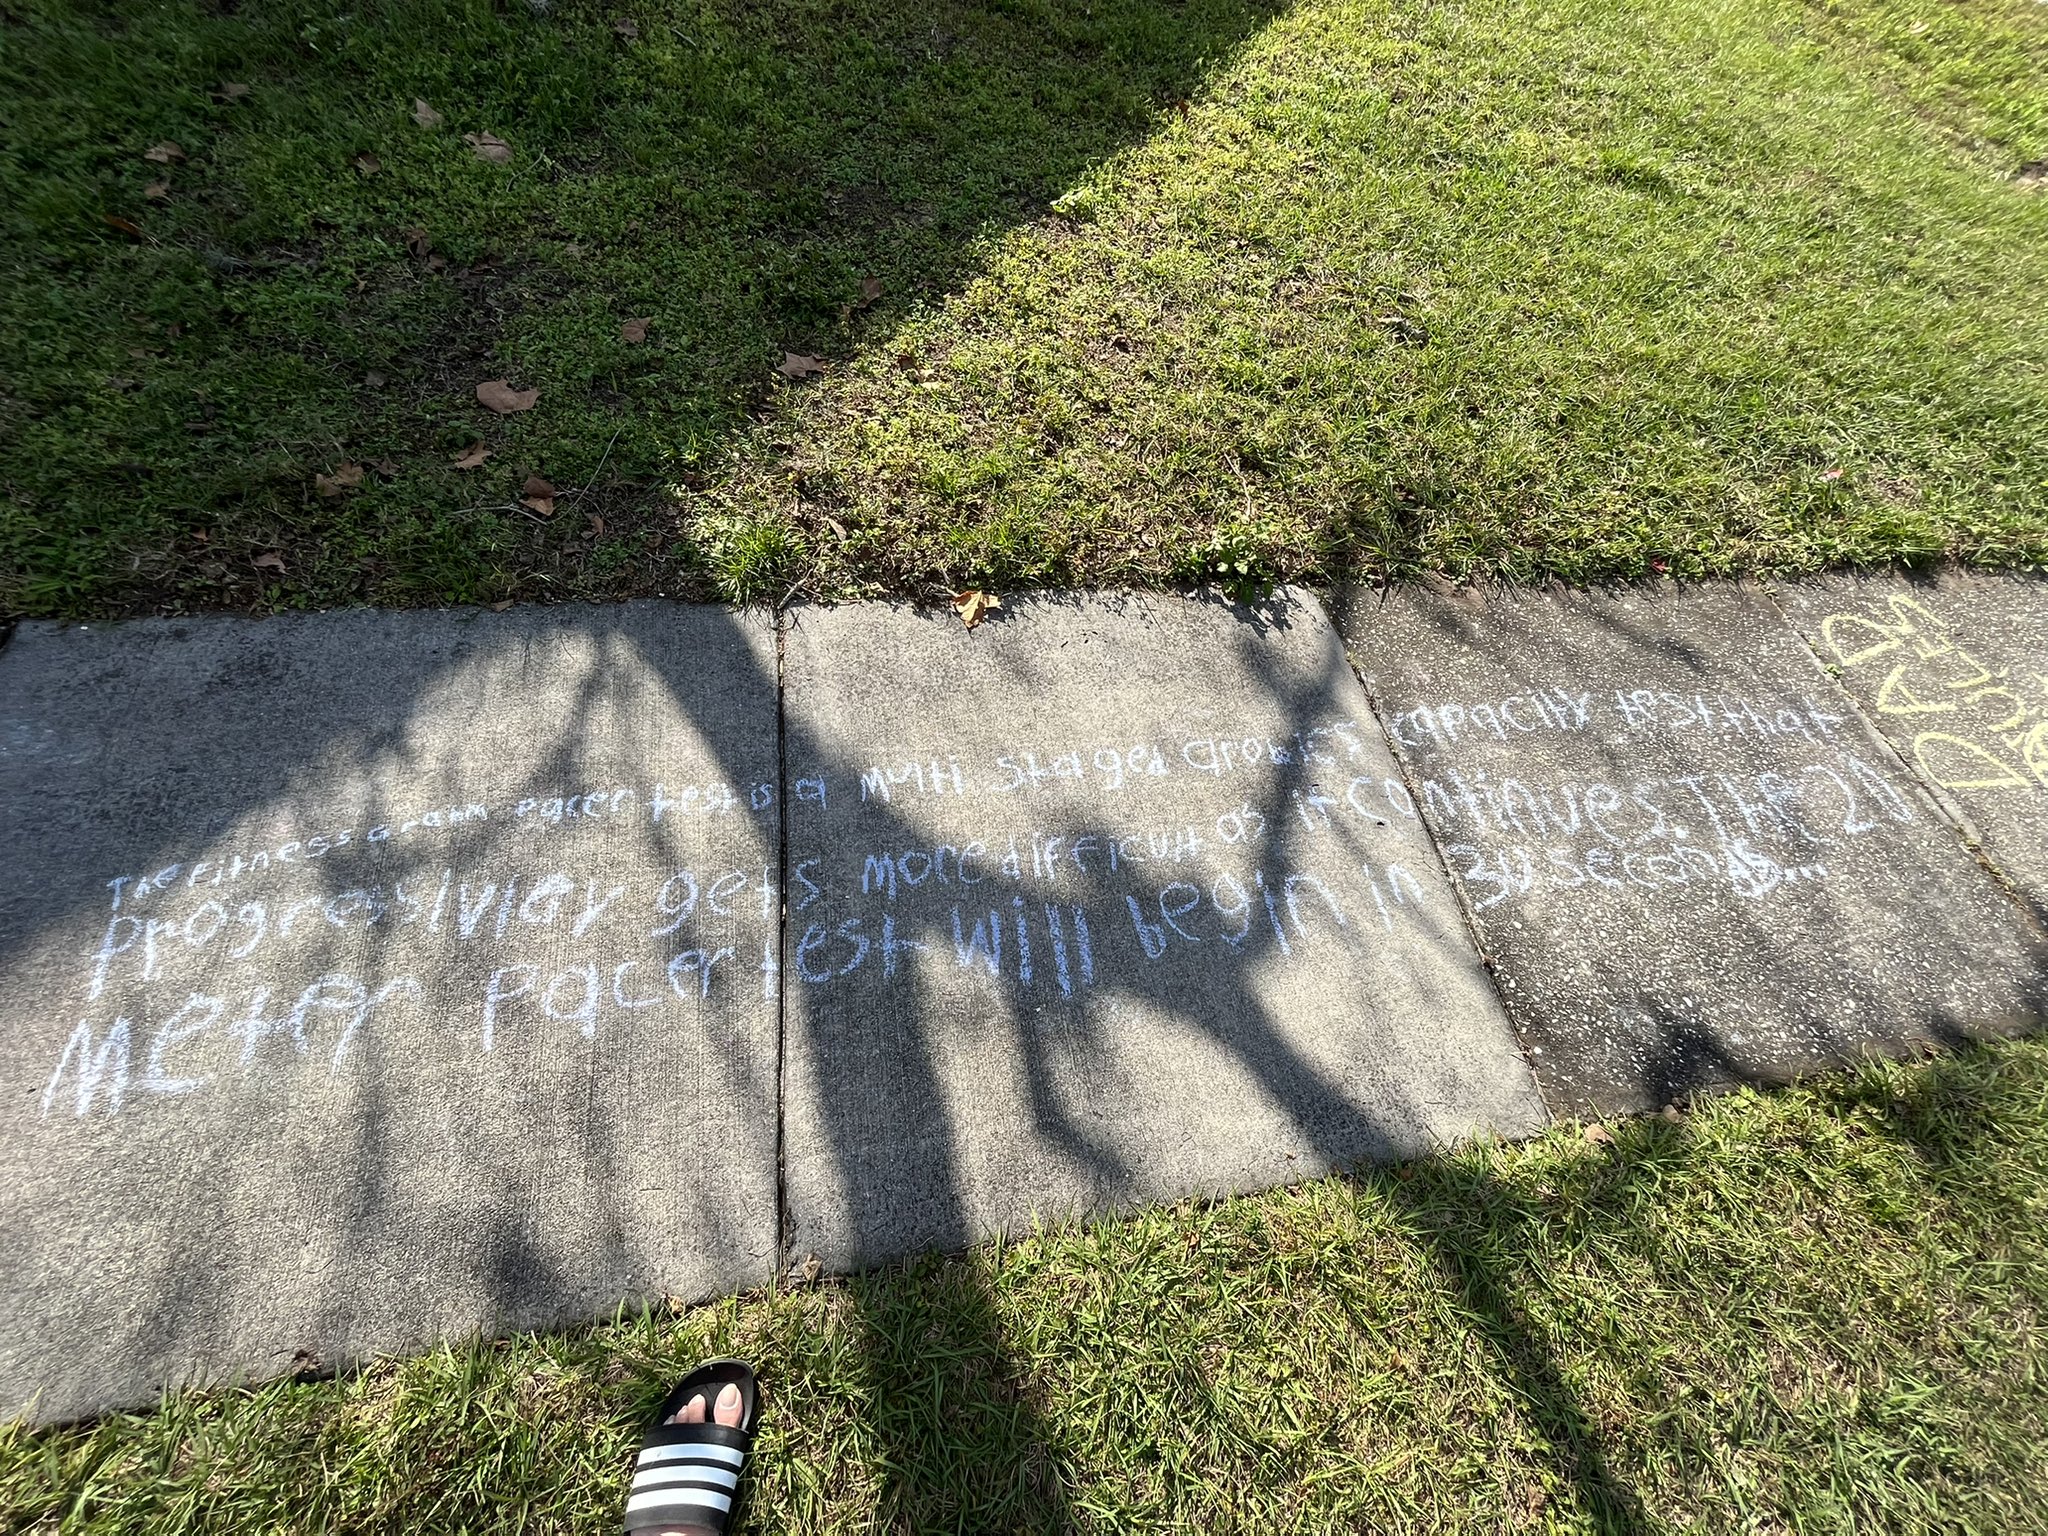 The Fitness gram pacer test is a Multi Staged arobics capacity test that
progressivley gets More difficult as it continues. The 20
Meter pacer test will begin in 30 seconds...